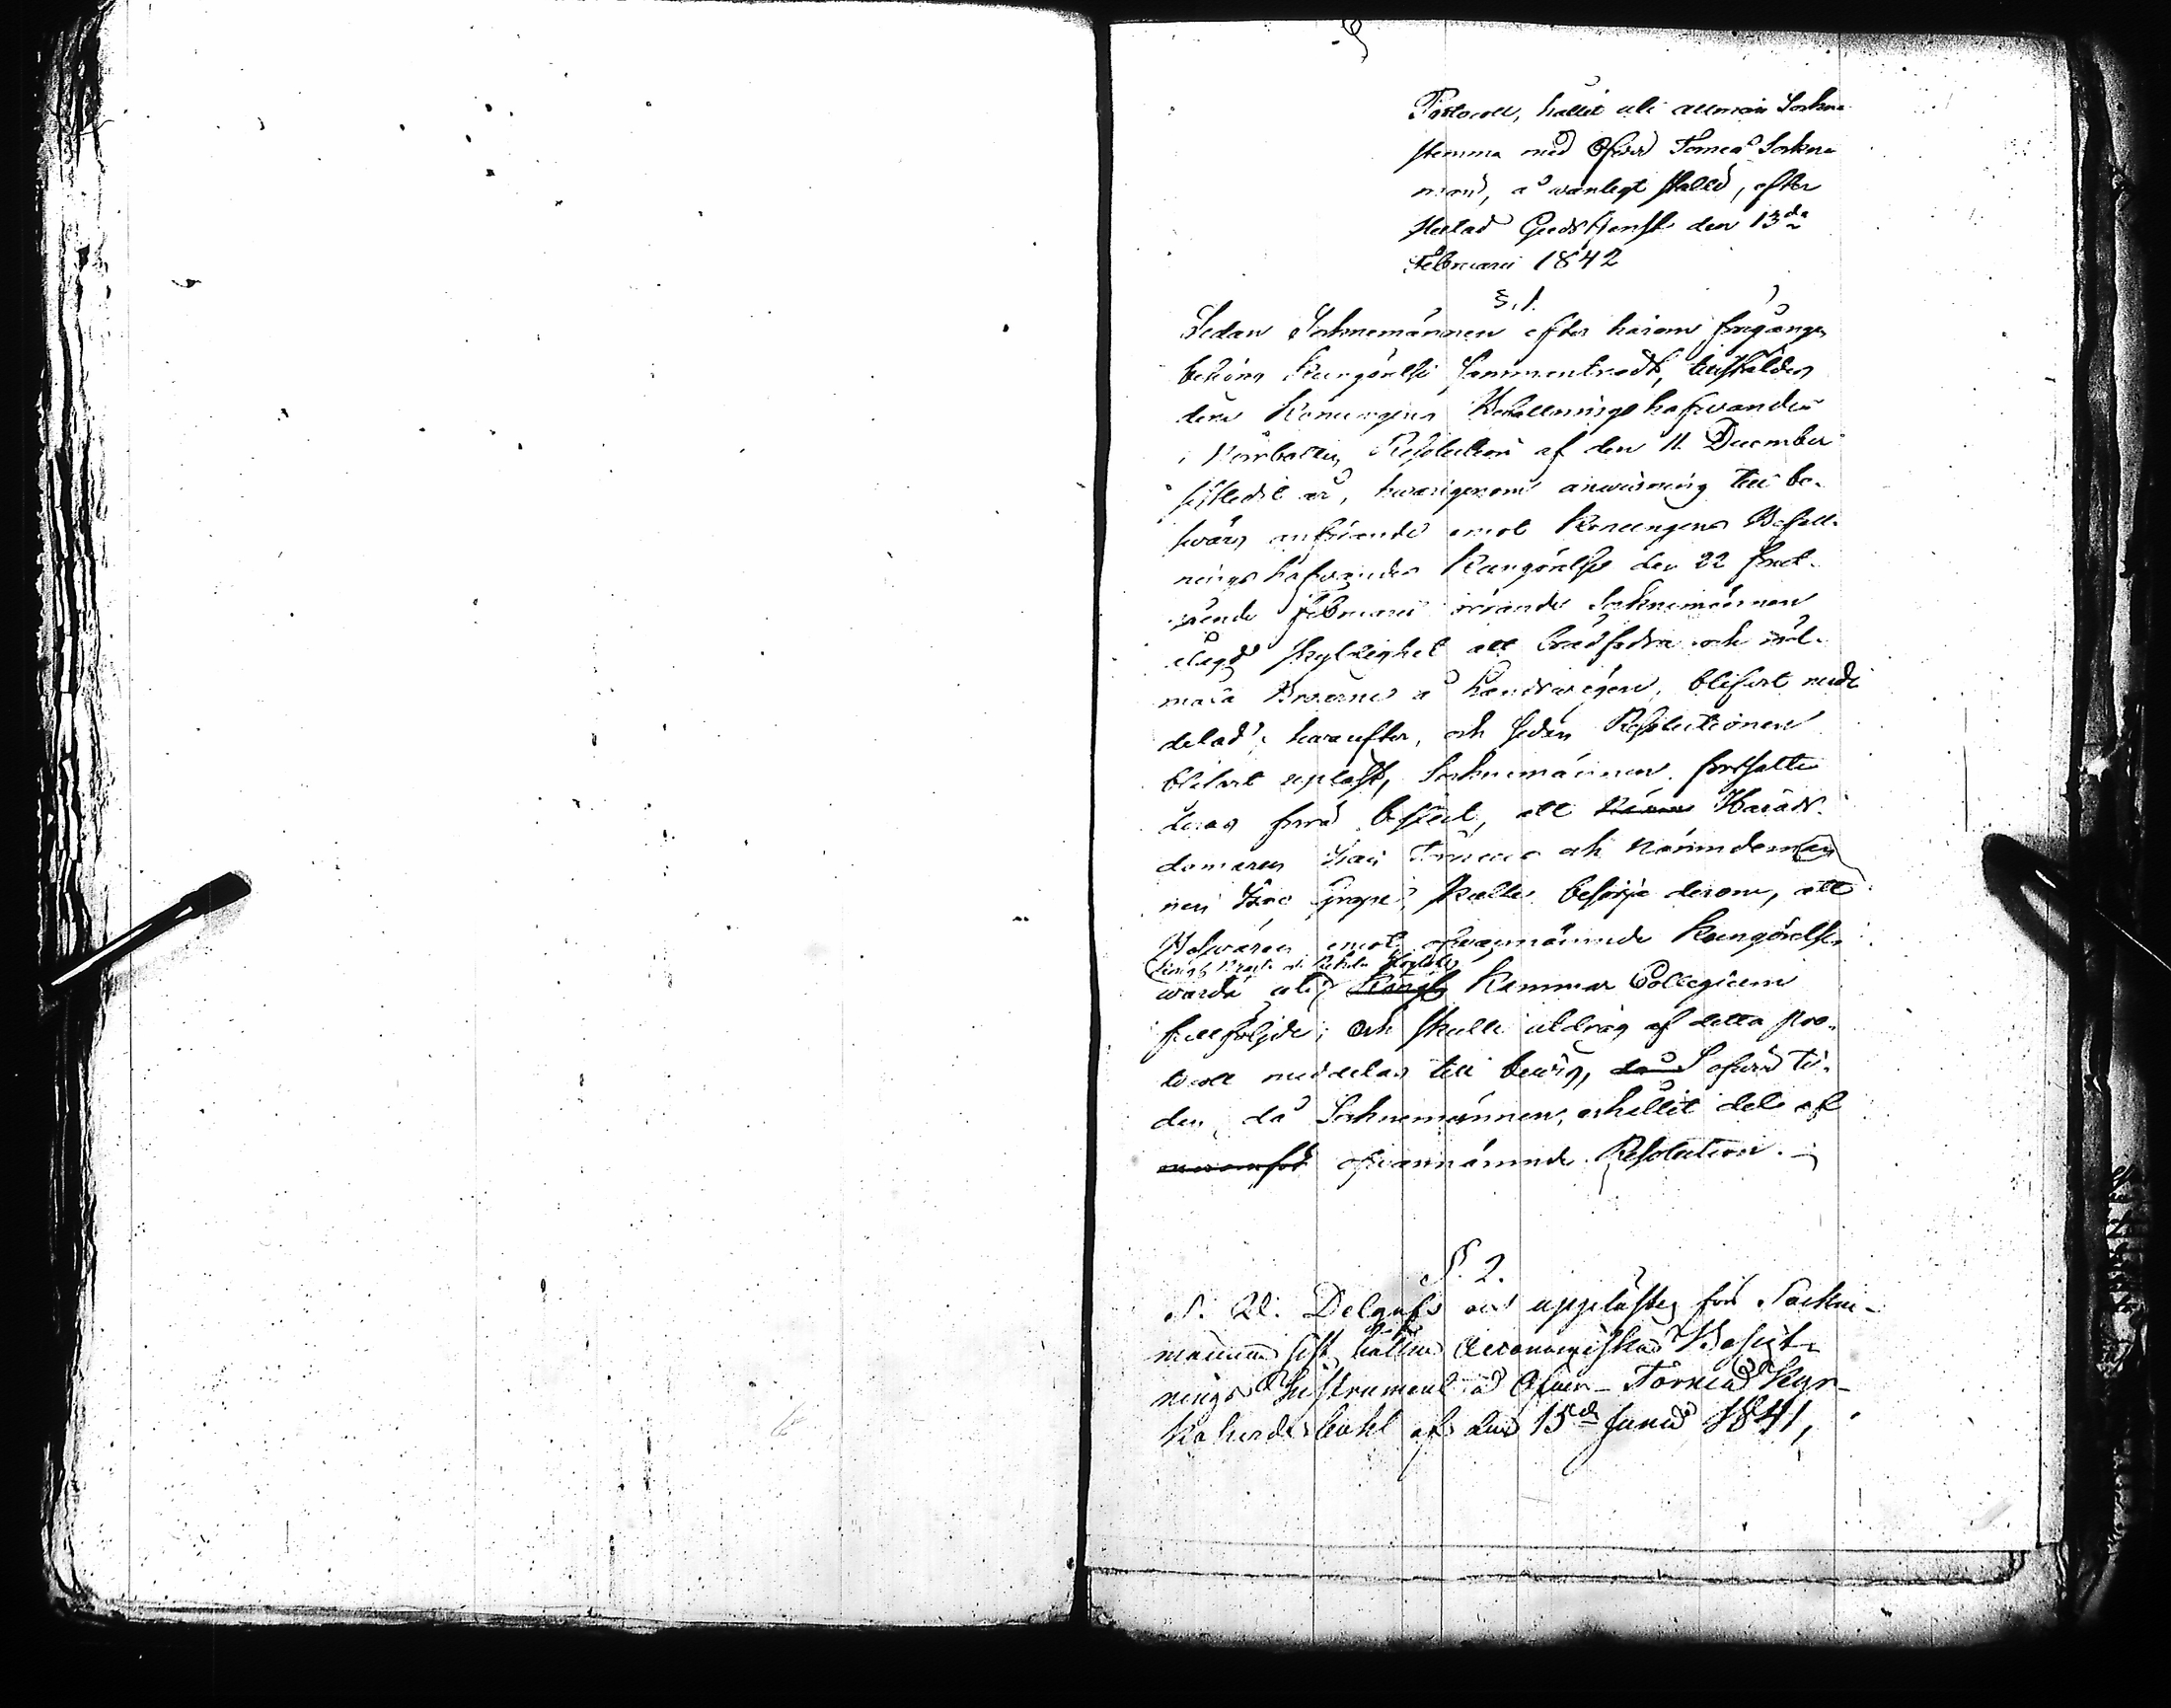 Protocoll, hållit uti allmän Sockne
stemma med Öfver Torneå Sockne
män, å vanligt ställe, efter
slutad Gudstjenst den 13de
Februarii 1842
§. 1.
Sedan Socknemännen efter härom föregången
behörig Kungörelse sammanträdt, tillställdes
dem Konungens Befallningshafvandes
i Norrbotten Resolution af den 11 December
sistledit år, hvarigenom anvisning till be-
svärs anförande emot Konungens Befall-
ningshafvandes Kungörelse den 22
Februarii rörande Socknemännen
ålagd skyldighet att brädfodra och röd-
måla Broarne å Landsvägen, blifvit med-
delad; hvarefter, och sedan Resolutionen
blifvit upläst, Socknemännen fortsatte
deras förra beslut, att Härads-
domaren och Nämndeman
nen Isac Grape, skulle besörja derom, att
Besvären emot ofvannämnde Kungörelse
Kongl
warda uti Kongl Kammar Collegium
fullföljde; och skulle utdrag af detta pro-
tocoll meddelas till bevis, då öfver ti-
den, då Socknemännen, erhållit del af
ofvannämnde Resolution.
§. 2.
S. D. Delgafs och upplästes för Sockne-
männen sist hållne Oeconomiska Besigt-
nings Instrument å Öfver-Torneå Kyr-
koherdebohl af den 15de Junii 1841,